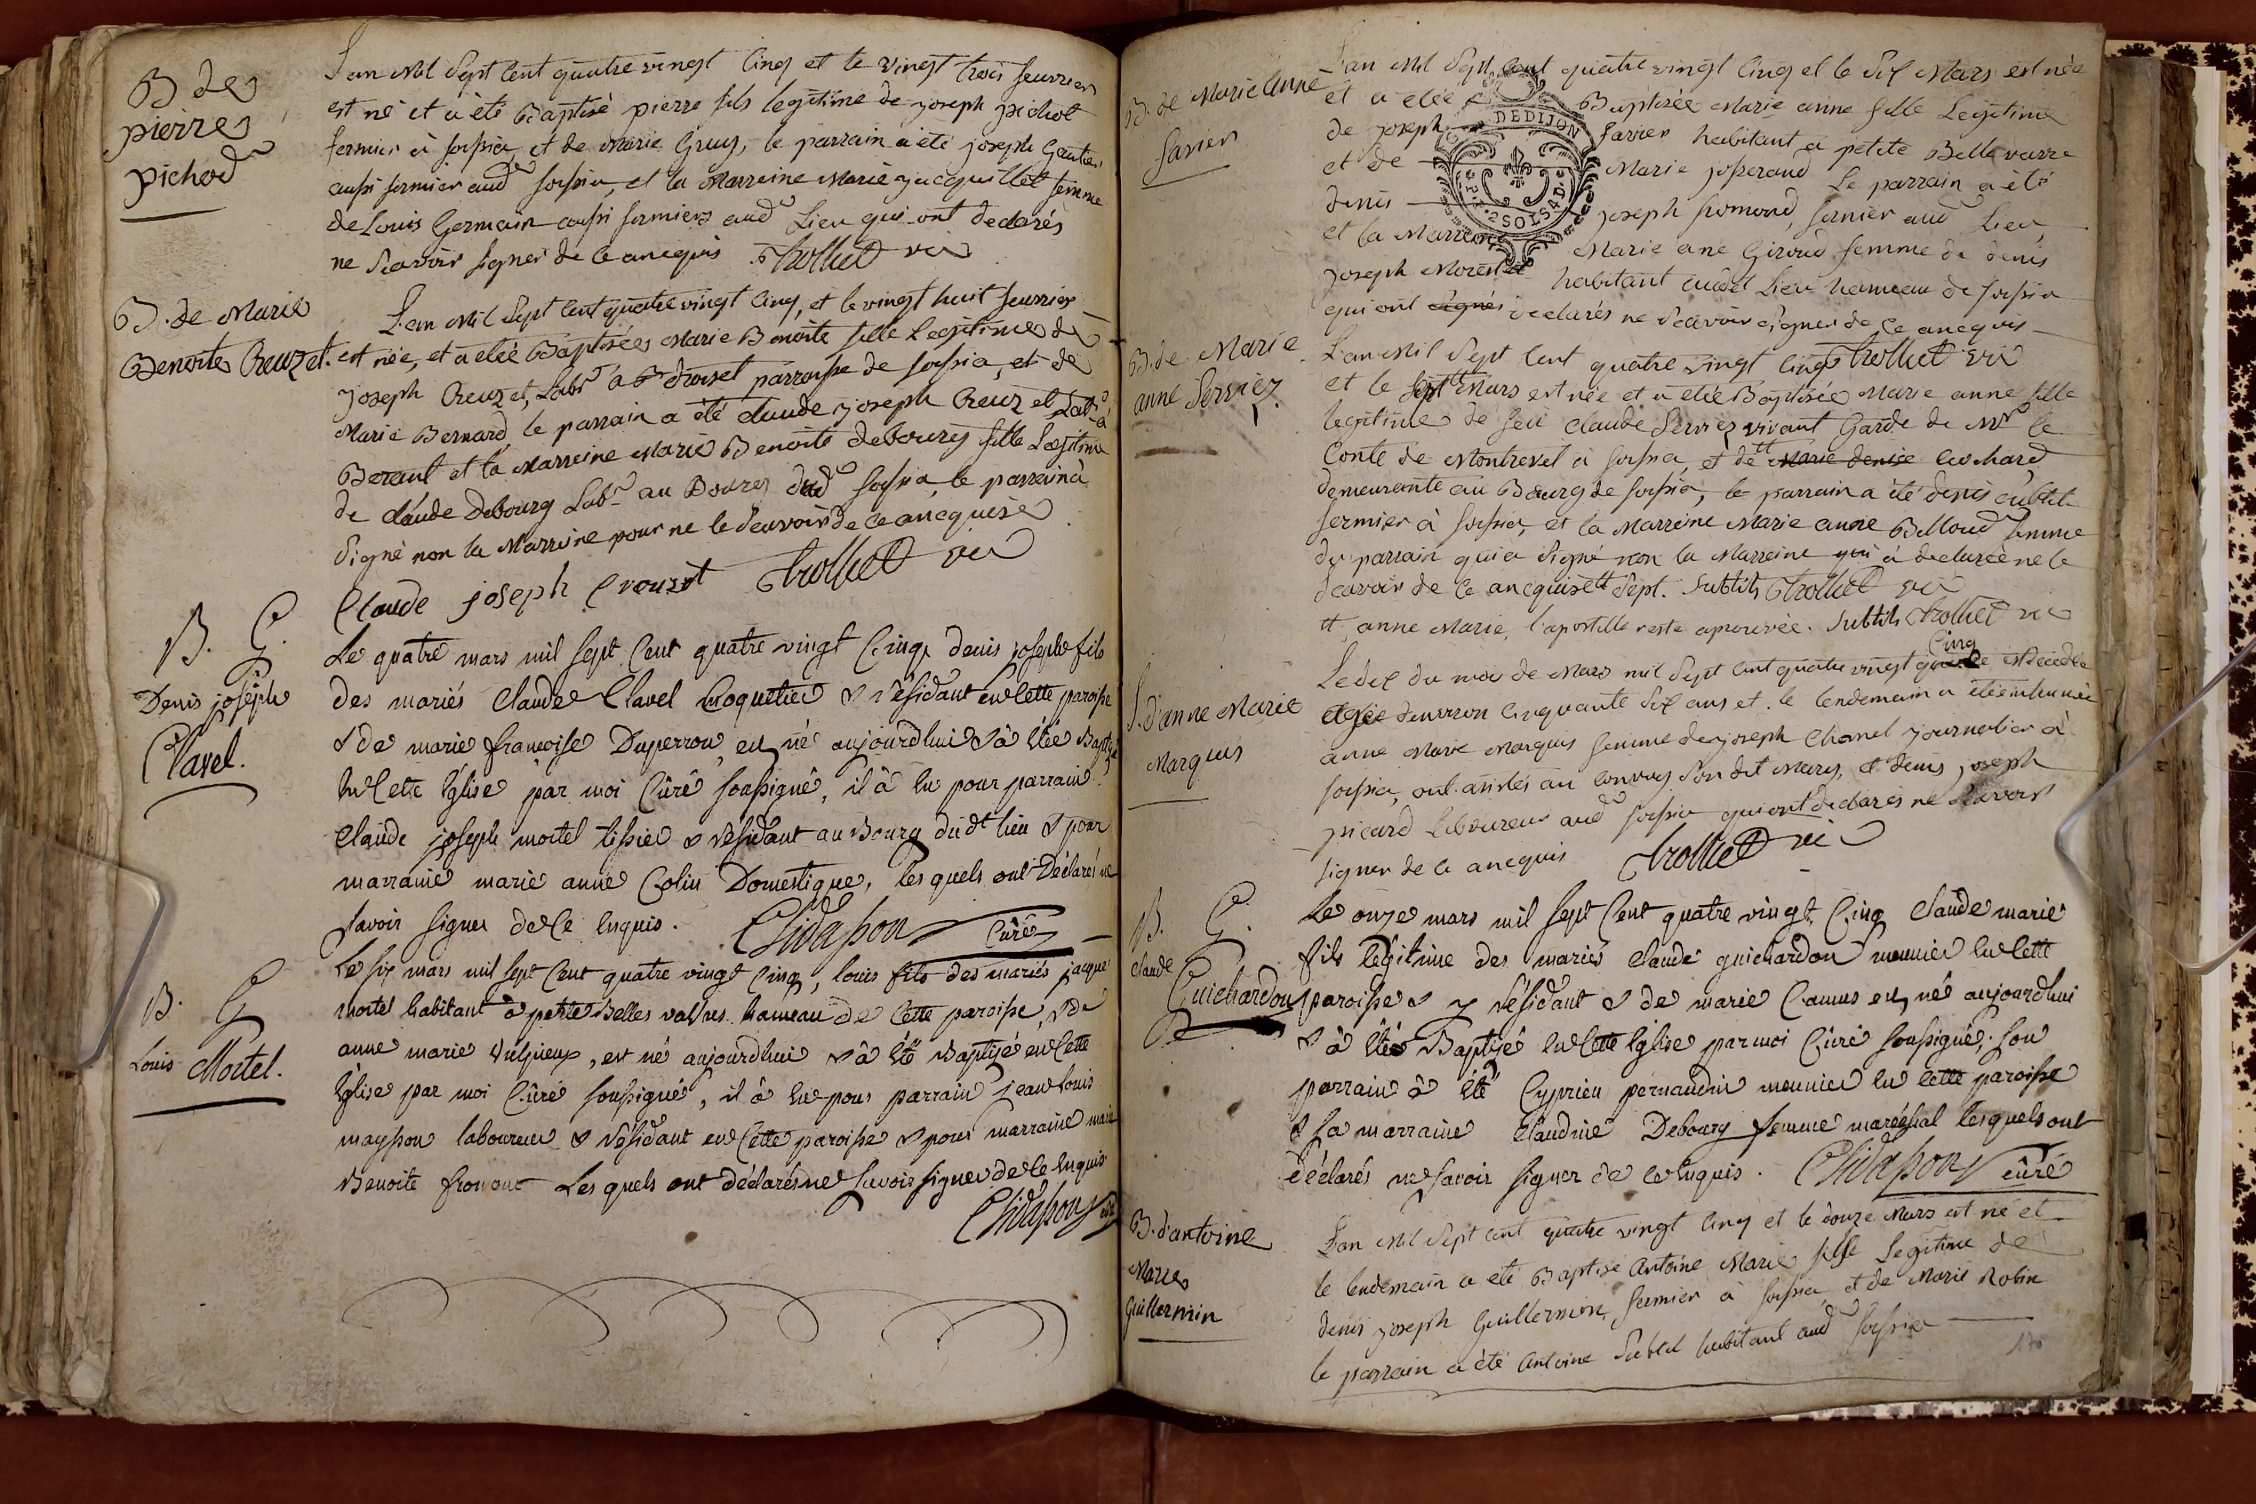 B de
pierre
pichod
L'an Mil Sept Cent quatre vingt Cinq et le vingt trois feuvrier
est né et a été Baptisé pierre fils legitime de joseph pichot
fermier à foissia, et de Marie Gruy, le parrain a été joseph Gautier
aussi fermier aud foissia, et la Marreine Marie jacquillot femme
de Louis Germain aussi fermiers aud Lieu qui ont declarés
ne Scavoir signer de Ce ancquis Trolliet vic
B. de Marie
Benoite Creuzet.
L'an Mil Sept Cent quatre vingt Cinq, et le vingt huit feuvrier
est née, et a étéé Baptisée Marie Benoite fille Legitime de
joseph Creuzet, Labr a parroisse de foissia, et de
Marie Bernard, le parrain a été claude joseph Creuzet Labr à
et la Marreine Marie Benoite debourg fille Legitime
de claude Debourg Labr au Bourg dud foissia, le parrain à
Signé non la Marreine pour ne le Scavoir de Ce ancquisè
Claude joseph Crouzet Trolliet vic
B. G.
Denis joseph
Clavel.
Le quatre mars mil sept Cent quatre vingt Cinq, denis joseph fils
des mariés Claude Clavel Coquetier & résidant en Cette paroisse
& de marie françoise Duperron, est né aujourdhui & à été Baptisé
en Cette Eglise par moi Curé soussigné, il à eu pour parrain
Claude joseph mortel tissier & résidant au Bourg dudt lieu & pour
marraine marie anne Colin Domestique, les quels ont Déclarés ne
savoir signer de Ce enquis. Chidasson Curé
B. G.
Louis Mortel.
Le six mars mil sept Cent quatre vingt Cinq, louis fils des mariés jacque
mortel habitant à petite Belles valvres hameau de Cette paroisse, & de
anne marie vulpieux, est né aujourdhui & à été Baptisé en Cette
Eglise par moi Curé soussigné, il à eu pour parrain jean louis
maysson laboureur & résidant en Cette paroisse & pour marraine marie
Benoite fromont Les quels ont déclarés ne savoir signer de Ce enquis
Chidasson curé
B. de Marie Anne
favier
DEDIJON
2.SOLS 4.D.
L'an Mil Sept Cent quatre vingt Cinq et le Six Mars est née
et a étéé Baptisée Marie anne fille Legitime
de joseph favier habitant a petite Bellevavre
et de Marie josserand Le parrain a été
denis joseph fromond, fermier aud Lieu
et la Marreine Marie ane Giroud femme de denis
joseph Morestel habitant audt Lieu hameau de foissia
qui ont signés declarés ne Scavoir Signer de Ce ancquis
Trolliet vic
B. de Marie
anne Serviez
L'an Mil Sept Cent quatre vingt Cinq
et le Sept Mars est née et a étéé Baptisée Marie anne fille
legitime de feu claude Serviez vivant Garde de Mr le
Conte de Montrevel à foissia, et de tt Marie denise Cuchard
demeurante au Bourg de foissia, le parrain a été denis Subtil
fermier à foissia, et la Marreine Marie anne Billoud femme
du parrain qui a Signé non la Marreine qui à declarée ne le
Scavoir de Ce ancquis tt Sept. Subtil Trolliet vic
tt, anne Marie, l'apostille reste aprouvée. Subtil Trolliet vic
S. d'anne Marie
Marquis
Le dix du moi de Mars mil Sept Cent quatre vingt quatre Cinq est decedée
agée d'environ Cinquante Six ans et le lendemain a étée inhumée
anne Marie Marquis femme de joseph Chanel journalier à
foissia, ont assistés au Convoy Son dit Mary, et denis joseph
picard Laboureur aud foissia qui ont declarés ne Scavoir
signer de Ce ancquis Trolliet vic
B. G.
Claude
Guichardon
Le onze mars mil sept Cent quatre vingt Cinq Claude marie
fils légitime des mariés Claude guichardon meunier en Cette
paroisse & y résidant & de marie Camus est né aujourdhui
& à été Baptisé en Cette Eglise par moi Curé soussigné; son
parrain à été Cyprien pernaudin meunier en Cette paroisse
& sa marraine Claudine Debourg femme maréchal lesquels ont
déclarés ne savoir signer de ce enquis. Chidasson curé
B. d'antoine
Marie
Guillermin
L'an Mil Sept Cent quatre vingt Cinq et le douze Mars est né et
le lendemain a été Baptisé Antoine Marie fils Legitime de
denis joseph Guillermin fermier à foissia et de Marie Robin
le parrain a été Antoine Subtil habitant aud foissia